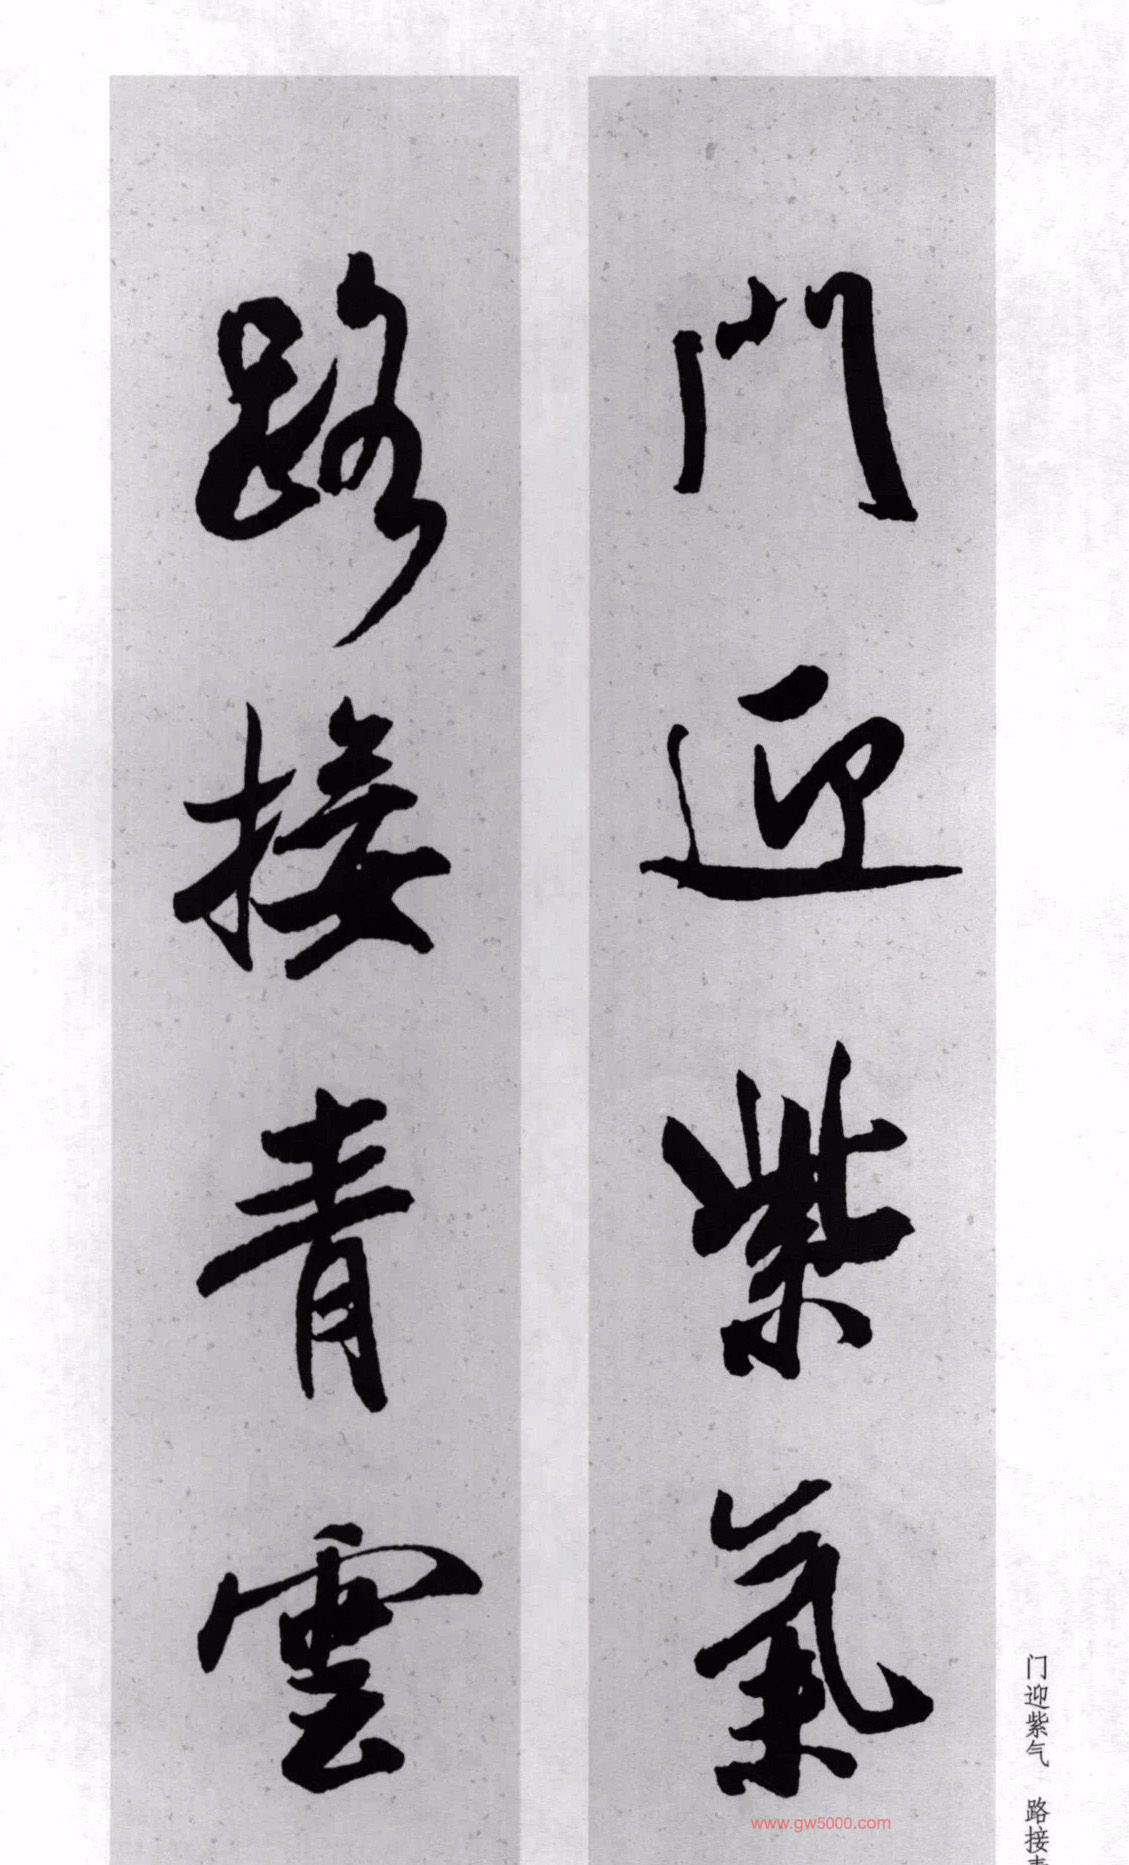 門迎紫氣
路接青雲
门迎紫气 路接青
www.gw5000.com